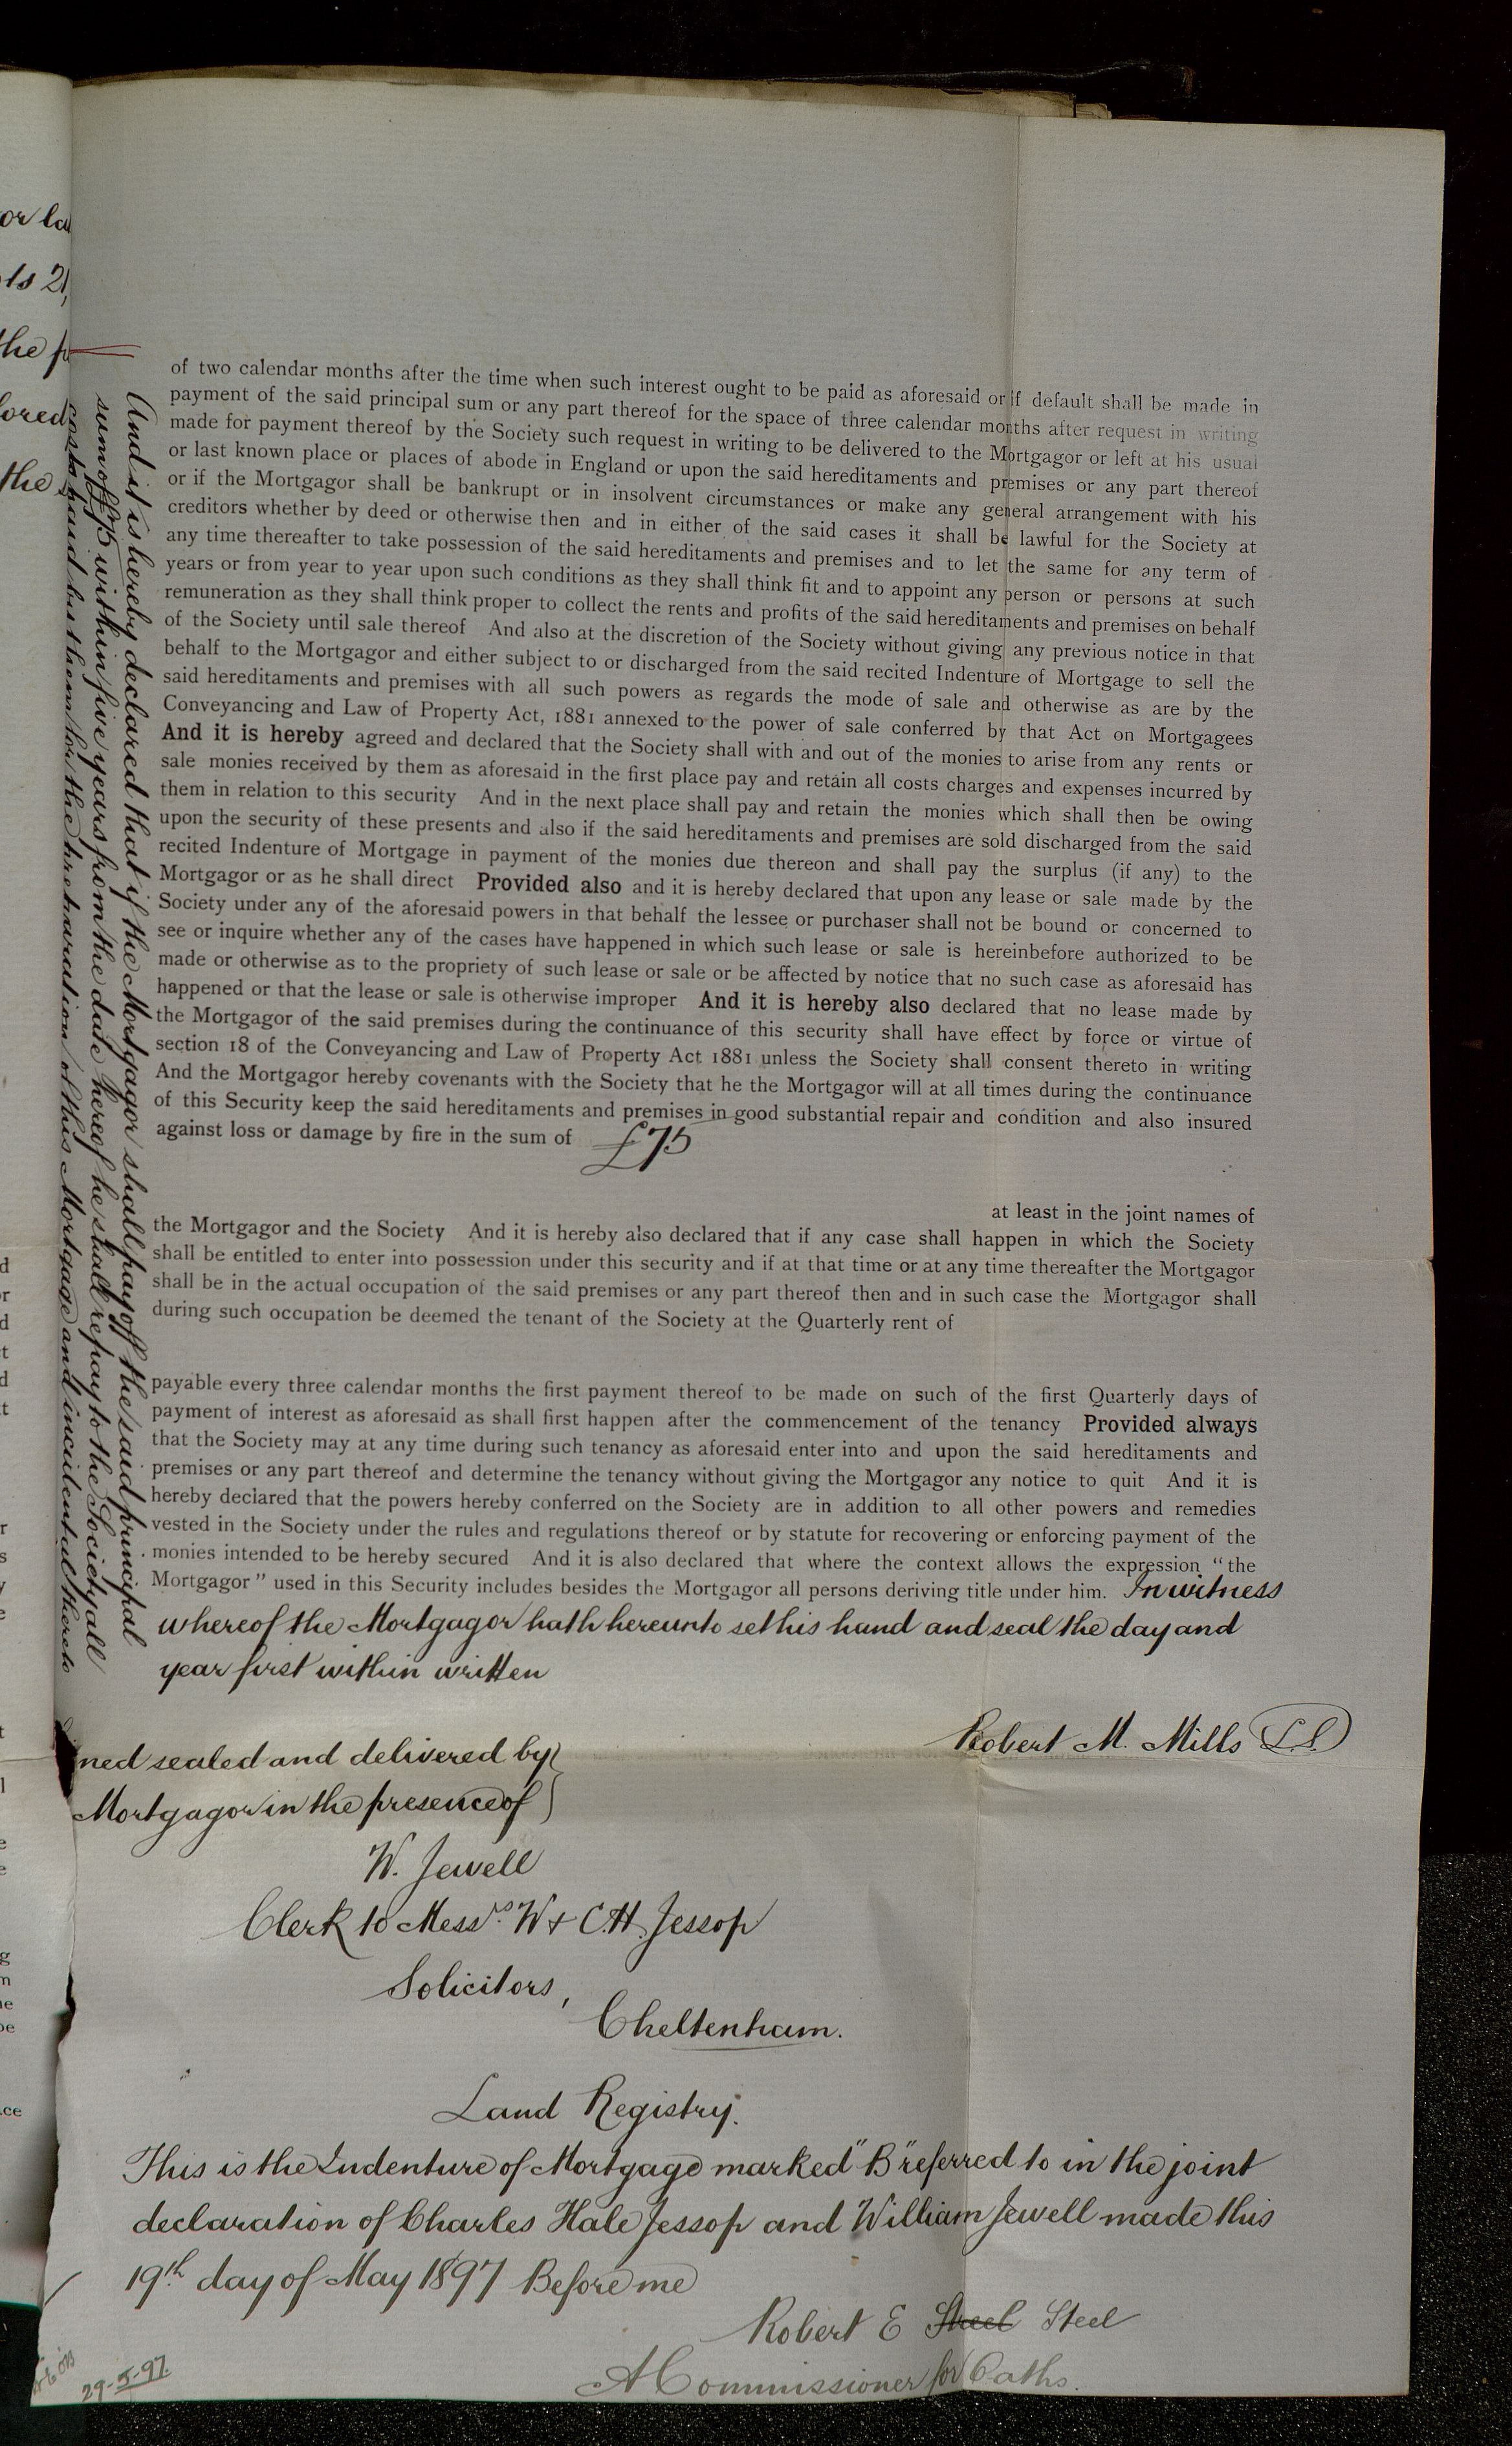 of two calendar months after the time when such interest ought to be paid as aforesaid or if default shall be made in
payment of the said principal sum or any part thereof for the space of three calendar months after request in writing
made for payment thereof by the Society such request in writing to be delivered to the Mortgagor or left at his usual
or last known place or places of abode in England or upon the said hereditaments and premises or any part thereof
or if the Mortgagor shall be bankrupt or in insolvent circumstances or make any general arrangement with his
creditors whether by deed or otherwise then and in either of the said cases it shall be lawful for the Society at
any time thereafter to take possession of the said hereditaments and premises and to let the same for any term of
years or from year to year upon such conditions as they shall think fit and to appoint any person or persons at such
remuneration as they shall think proper to collect the rents and profits of the said hereditaments and premises on behalf
of the Society until sale thereof And also at the discretion of the Society without giving any previous notice in that
behalf to the Mortgagor and either subject to or discharged from the said recited Indenture of Mortgage to sell the
said hereditaments and premises with all such powers as regards the mode of sale and otherwise as are by the
Conveyancing and Law of Property Act, 1881 annexed to the power of sale conferred by that Act on Mortgagees
And it is hereby agreed and declared that the Society shall with and out of the monies to arise from any rents or
sale monies received by them as aforesaid in the first place pay and retain all costs charges and expenses incurred by
them in relation to this security And in the next place shall pay and retain the monies which shall then be owing
upon the security of these presents and also if the said hereditaments and premises are sold discharged from the said
recited Indenture of Mortgage in payment of the monies due thereon and shall pay the surplus (if any) to the
Mortgagor or as he shall direct Provided also and it is hereby declared that upon any lease or sale made by the
Society under any of the aforesaid powers in that behalf the lessee or purchaser shall not be bound or concerned to
see or inquire whether any of the cases have happened in which such lease or sale is hereinbefore authorized to be
made or otherwise as to the propriety of such lease or sale or be affected by notice that no such case as aforesaid has
happened or that the lease or sale is otherwise improper And it is hereby also declared that no lease made by
the Mortgagor of the said premises during the continuance of this security shall have effect by force or virtue of
section 18 of the Conveyancing and Law of Property Act 1881 unless the Society shall consent thereto in writing
And the Mortgagor hereby covenants with the Society that he the Mortgagor will at all times during the continuance
of this Security keep the said hereditaments and premises in good substantial repair and condition and also insured
against loss or damage by fire in the sum of £75
at least in the joint names of
the Mortgagor and the Society And it is hereby also declared that if any case shall happen in which the Society
shall be entitled to enter into possession under this security and if at that time or at any time thereafter the Mortgagor
shall be in the actual occupation of the said premises or any part thereof then and in such case the Mortgagor shall
during such occupation be deemed the tenant of the Society at the Quarterly rent of
payable every three calendar months the first payment thereof to be made on such of the first Quarterly days of
payment of interest as aforesaid as shall first happen after the commencement of the tenancy Provided always
that the Society may at any time during such tenancy as aforesaid enter into and upon the said hereditaments and
premises or any part thereof and determine the tenancy without giving the Mortgagor any notice to quit And it is
hereby declared that the powers hereby conferred on the Society are in addition to all other powers and remedies
vested in the Society under the rules and regulations thereof or by statute for recovering or enforcing payment of the
monies intended to be hereby secured And it is also declared that where the context allows the expression "the
Mortgagor" used in this Security includes besides the Mortgagor all persons deriving title under him. In witness
whereof the Mortgagor hath hereunto set his hand and seal the day and
year first within written
And it is hereby declared that if the Mortgagor shall pay off the said principal
sum of £75 within five years from the date hereof he shall repay to the Society all
costs paid by them for the preparation of this Mortgage and incidental thereto
Robert M. Mills L.S.
ned sealed and delivered by
Mortgagor in the presence of
W. Jewell
Clerk to Messrs. W & C.H. Jessop
Solicitors,
Cheltenham.
Land Registry.
This is the Indenture of Mortgage marked "B" referred to in the joint
declaration of Charles Hale Jessop and William Jewell made this
19th day of May 1897 Before me
Robert E Steel
A Commissioner for Oaths.
29-5-97